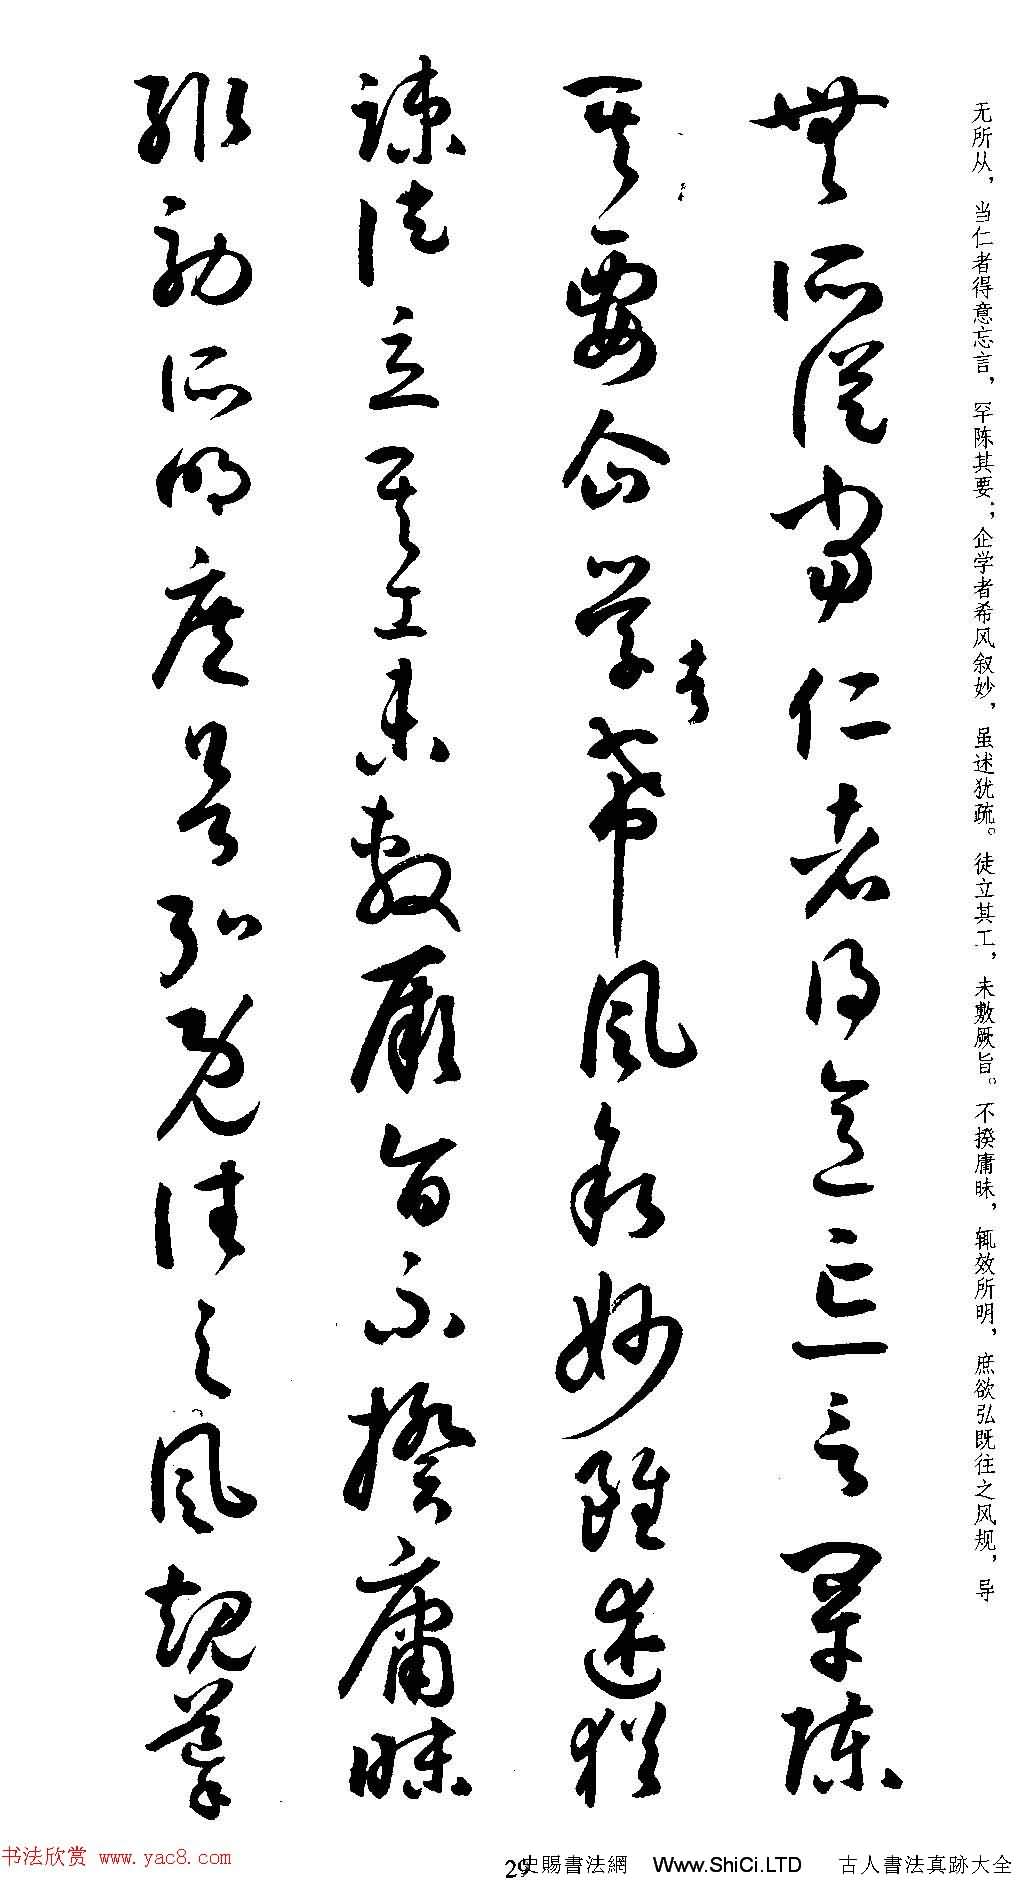 无所从，当仁者得意忘言，罕陈其要；企学者希风叙妙，虽述犹疏。徒立其工，未敷厥旨。不揆庸昧，辄效所明，庶欲弘既往之风规，导
無所從當仁者得意忘言罕陳
其要企學者希風叙妙雖述猶
疎徒立其工未敷厥旨不揆庸昧
輒効所明庶欲弘既往之風規導
书法欣赏 www.yac8.com
29
史賜書法網 Www.ShiCi.LTD 古人書法真跡大全